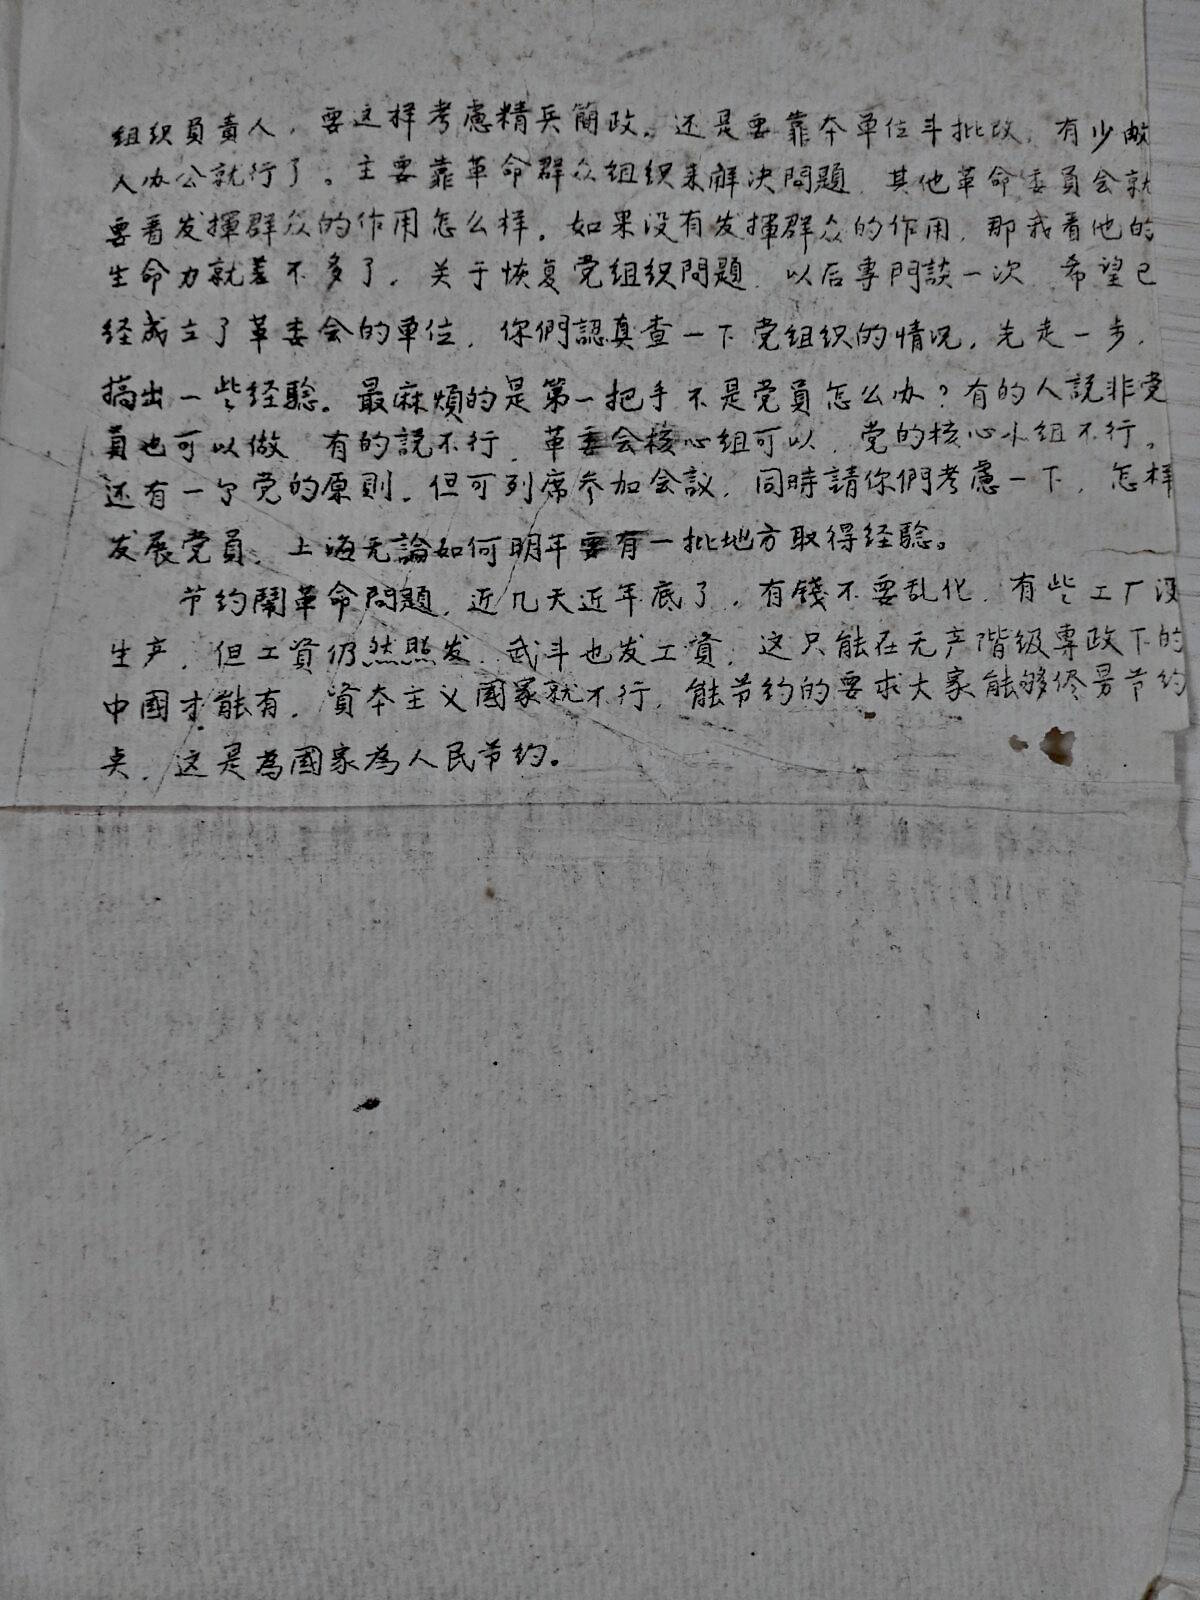 组织負責人，要这样考慮精兵簡政。还是要靠本单位斗批改，有少数
人办公就行了。主要靠革命群众组织来解决問題，其他革命委員会就
要看发揮群众的作用怎么样。如果没有发揮群众的作用，那我看他的
生命力就差不多了。关于恢复党组织問題，以后專門談一次，希望已
经成立了革委会的单位，你們認真查一下党组织的情况，先走一步，
搞出一些经驗。最麻煩的是第一把手不是党員怎么办？有的人説非党
員也可以做，有的説不行，革委会核心組可以，党的核心小组不行。
还有一个党的原則，但可列席参加会議，同時請你們考慮一下，怎样
发展党員，上海无論如何明年要有一批地方取得经驗。
节约鬧革命問題，近几天近年底了，有錢不要乱化，有些工厂没
生产，但工資仍然照发，武斗也发工資，这只能在无产階级專政下的
中國才能有，資本主义國家就不行，能节约的要求大家能够侭量节约
点，这是為國家為人民节约。